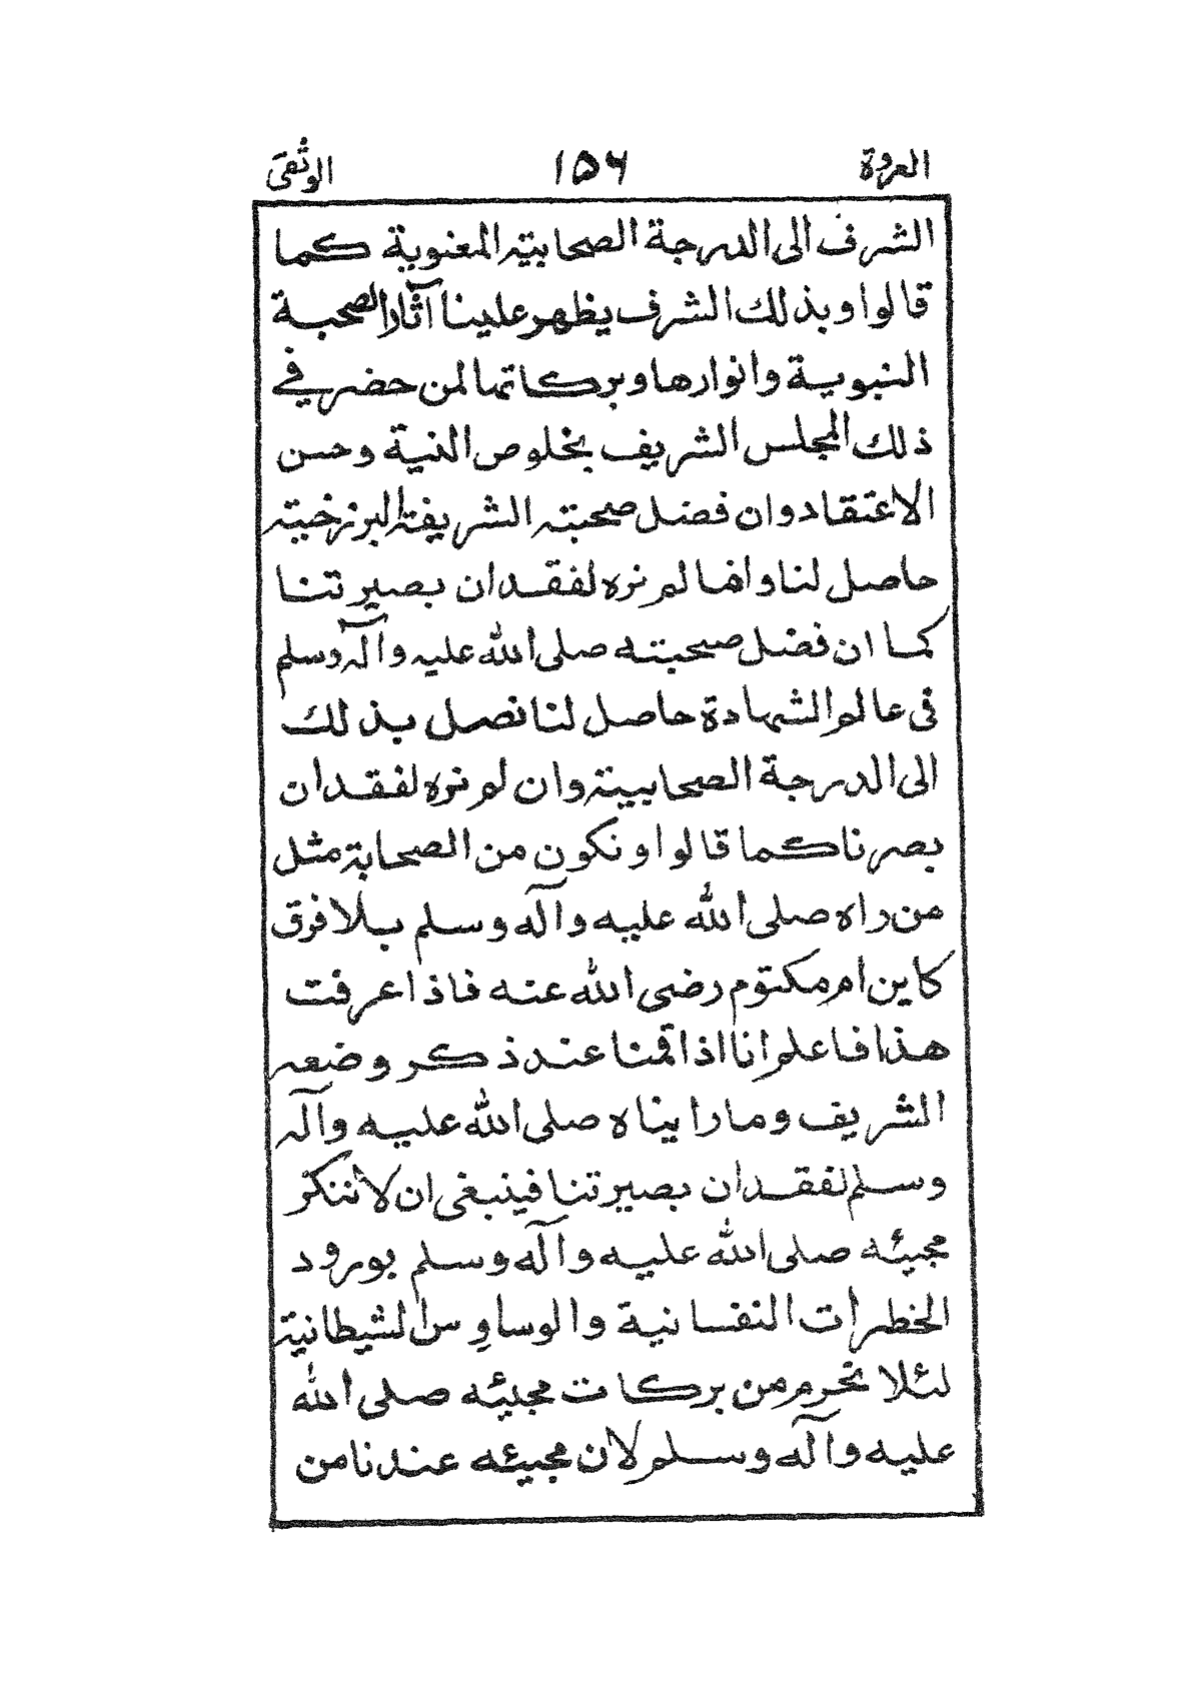 العروة ۱۵۶ الوثقى
الشرف الى الدرجة الصحابية المعنوية كما
قالوا وبذلك الشرف يظهر علينا آثار الصحبة
النبوية وانوارها وبركاتها لمن حضر في
ذلك المجلس الشريف بخلوص النية وحسن
الاعتقاد وان فضل صحبته الشريفة البرزخية
حاصل لنا وانما لم نره لفقدان بصيرتنا
كما ان فضل صحبته صلى الله عليه وآله وسلم
فى عالم الشهادة حاصل لنا نصل بذلك
الى الدرجة الصحابية وان لم نره لفقدان
بصرنا كما قالوا ونكون من الصحابة مثل
من راه صلى الله عليه وآله وسلم بلا فرق
كابن ام مكتوم رضى الله عنه فاذا عرفت
هذا فاعلم انا اذا قمنا عند ذكر وضعه
الشريف وما رايناه صلى الله عليه وآله
وسلم لفقدان بصيرتنا فينبغى ان لا ننكر
مجيئه صلى الله عليه وآله وسلم بورود
الخطرات النفسانية والوساوس الشيطانية
لئلا نحرم من بركات مجيئه صلى الله
عليه وآله وسلم لان مجيئه عندنا من